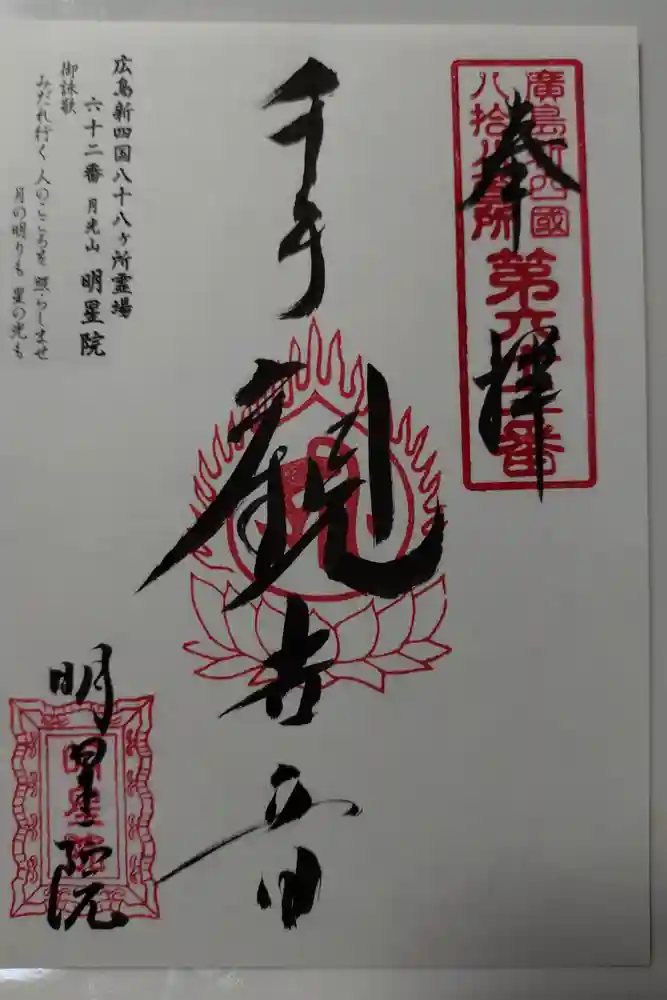 奉拝
廣島新四國
八拾八ヶ所
第六十二番
千手観世音
広島新四国八十八ヶ所霊場
六十二番 月光山 明星院
御詠歌
みだれ行く 人のこころを 照らしませ
月の明りも 星の光も
明星院
明星院